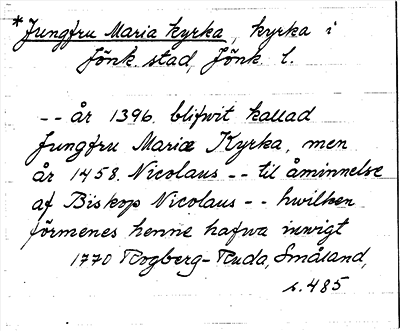 *Jungfru Maria kyrka, kyrka i
Jönk. stad, Jönk. l.
-- år 1396. blifwit kallad
Jungfru Mariæ Kyrka, men
år 1458. Nicolaus -- til åminnelse
af Biskop Nicolaus -- hwilken
förmenes henne hafwa inwigt
1770 Rogberg-Ruda, Småland,
s. 485